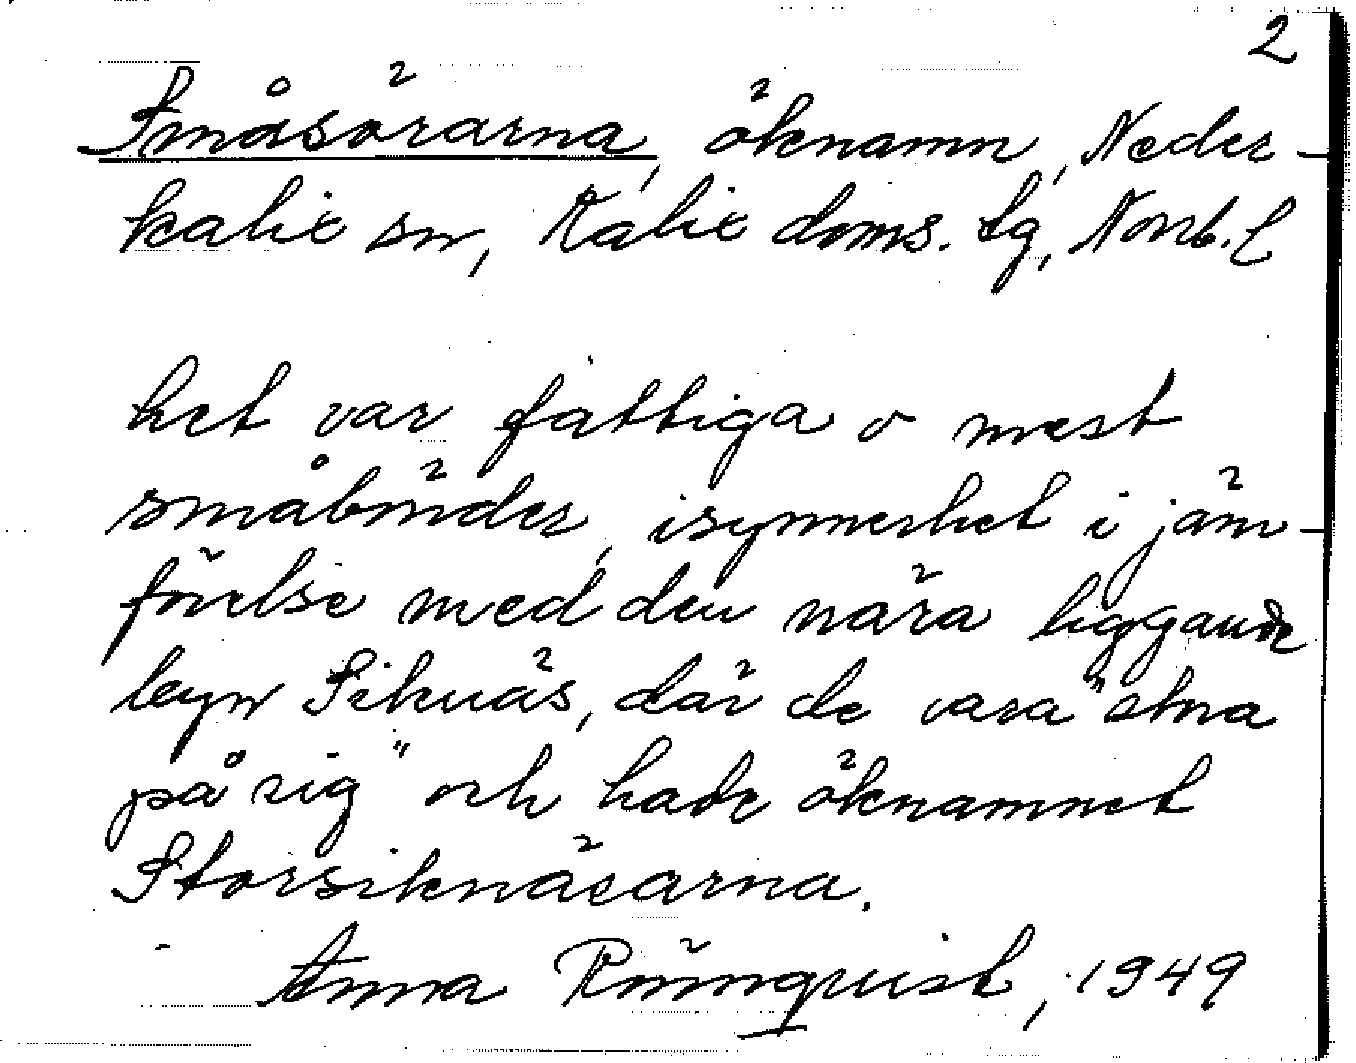 2
Småsörarna, öknamn, Neder-
kalix sn, Kalix doms. tg, Norrb. l
het var fattiga o mest
småbönder, isynnerhet i jäm-
förelse med den nära liggande
byn Siknäs, där de vara "stora
på sig" och hade öknamnet
Storsiknäsarna.
Anna Rönnquist, 1949